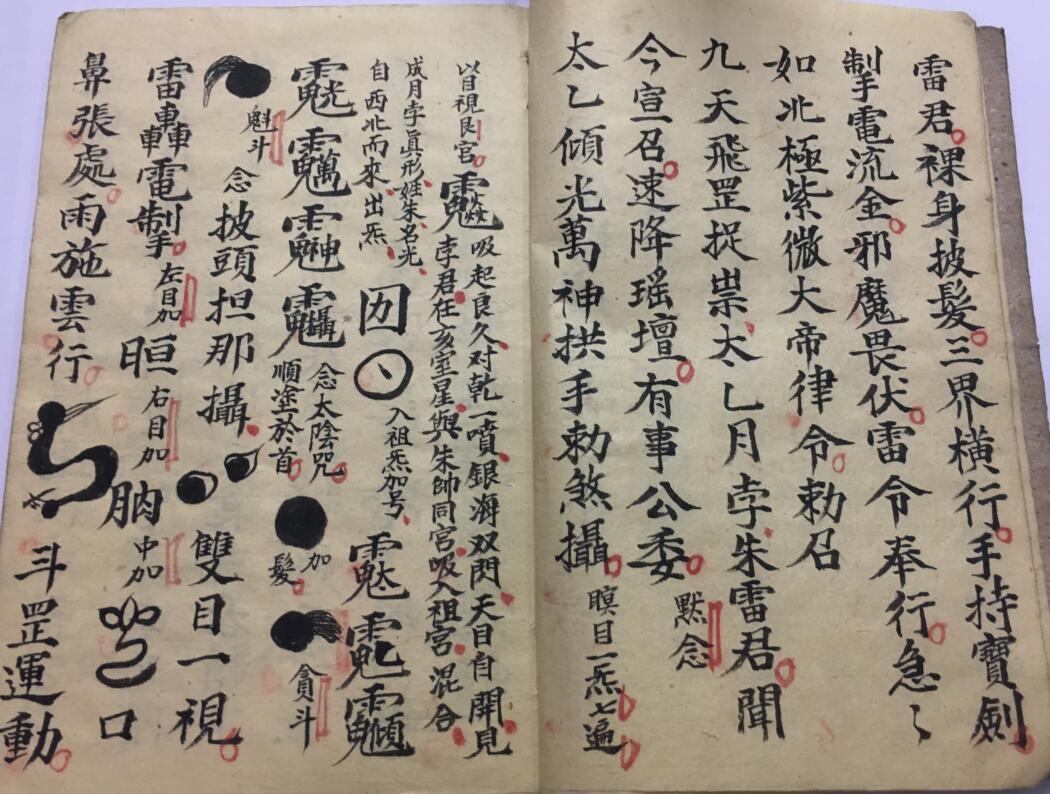 雷君。裸身披髮。三界橫行。手持寶劍。
掣電流金。邪魔畏伏。雷令奉行。急〻
如北極紫微大帝律令。勅召
九天飛罡捉祟太乙月孛朱雷君。聞
今宣召。速降瑶壇。有事公委。默念
太乙傾光萬神拱手勅煞攝。瞑目一炁七遍
以目視艮宫。
吸起良久、对乾一噴、銀海双閃、天目自開、見
孛君在亥室星與朱帥同宫、吸入祖宫、混合、
成月孛眞形、姓朱、名光、
自西北而來、出炁、
入祖炁加号、
念太陰咒
順塗於首
加
髮
貪斗
魁斗
念披頭担那攝、雙目一視。
雷轟電掣。左目加
晅右目加
朒中加
口
鼻張處。雨施雲行。
斗罡運動。